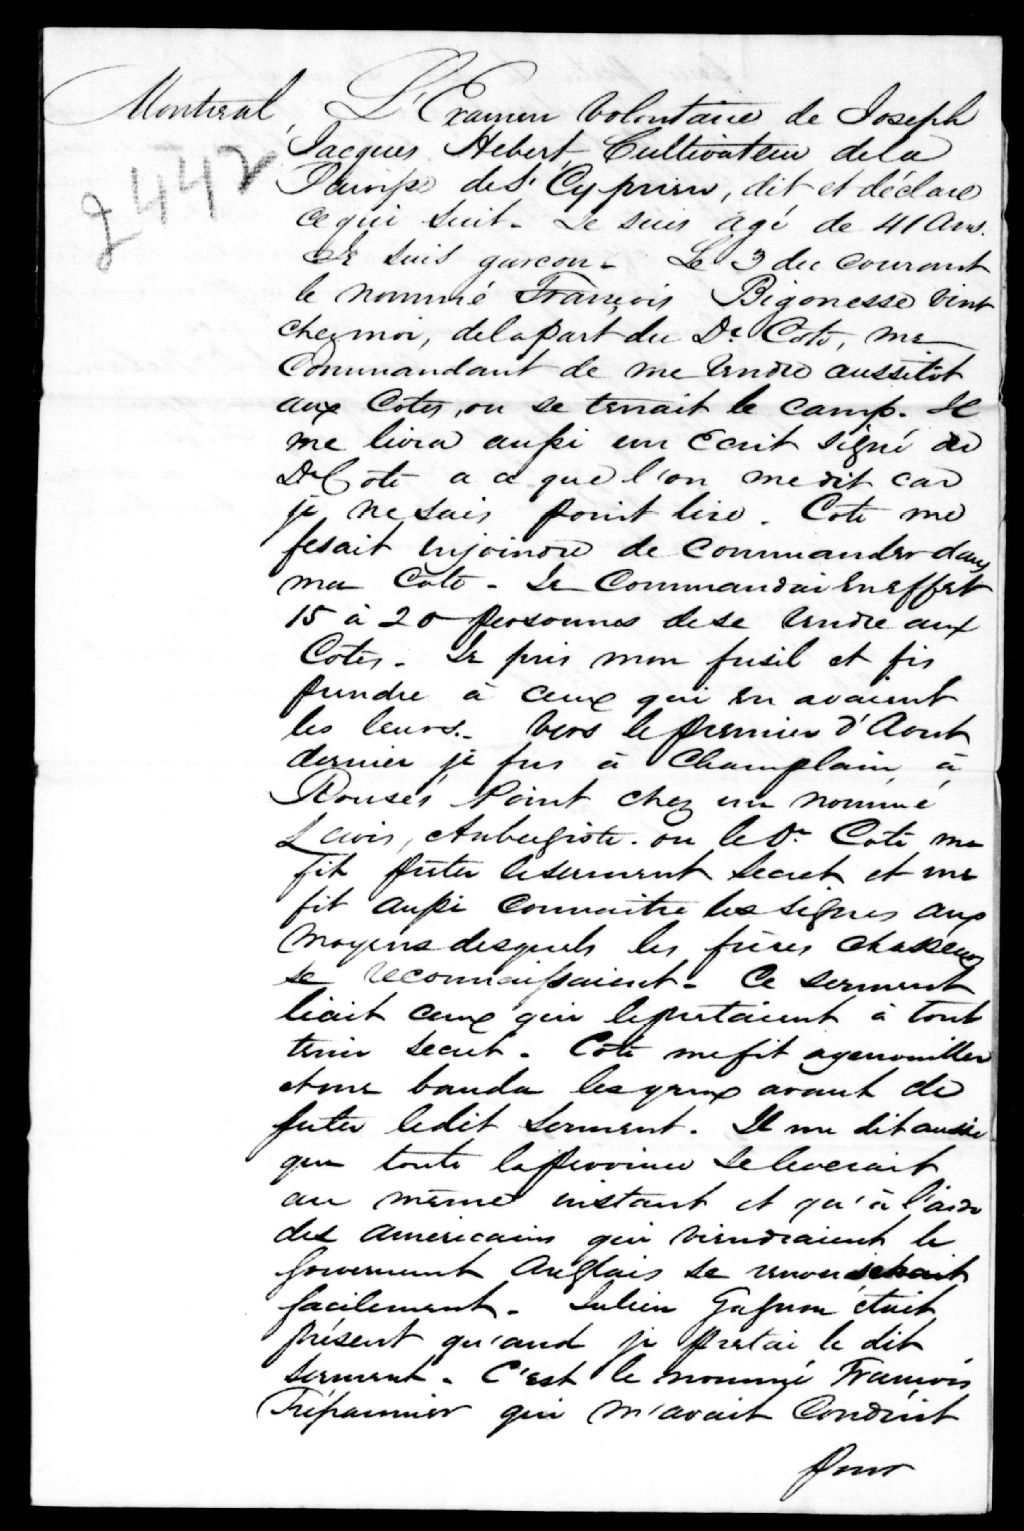 Montreal, L'Examen volontaire de Joseph
2442
Jacques Hebert, Cultivateur de la
Paroisse de St Cyprien, dit et déclare
ce qui suit - Je suis agé de 41 Ans.
Je suis garcon - Le 3 du courant
le nommé François Bigonesse vint
chez moi, de la part du Dr. Coté, me
Commandant de me rendre aussitôt
aux Cotes, ou se tenait le camp. Il
me livra aussi un Ecrit signé du
Dr Coté a ce que l'on me dit car
je ne sais point lire. Coté me
fesait enjoindre de commander dans
ma Cote - Je Commandai en effet
15 à 20 personnes de se rendre aux
Cotes - Je pris mon fusil et fis
prendre à ceux qui en avaient
les leurs - Vers le premier d'Aout
dernier je fus à Champlain, à
Rouses Point chez un nommé
Lavis, Aubergiste. ou le Dr. Coté me
fit prêter le serment secret et me
fit aussi connaitre les signes aux
moyens desquels les frères chasseurs
se reconnaissaient - Ce serment
liait ceux qui le pretaient à tout
tenir secret - Coté me fit agenouiller
et me banda les yeux avant de
preter le dit serment. Il me dit aussi
que toute la province se leverait
au même instant et qu'à l'aide
des americains qui viendraient le
Gouvernement Anglais se renverserait
facilement - Julien Gagnon était
présent qu'and je pretai le dit
serment - C'est le nommé François
Trépannier qui m'avait Conduit
pour